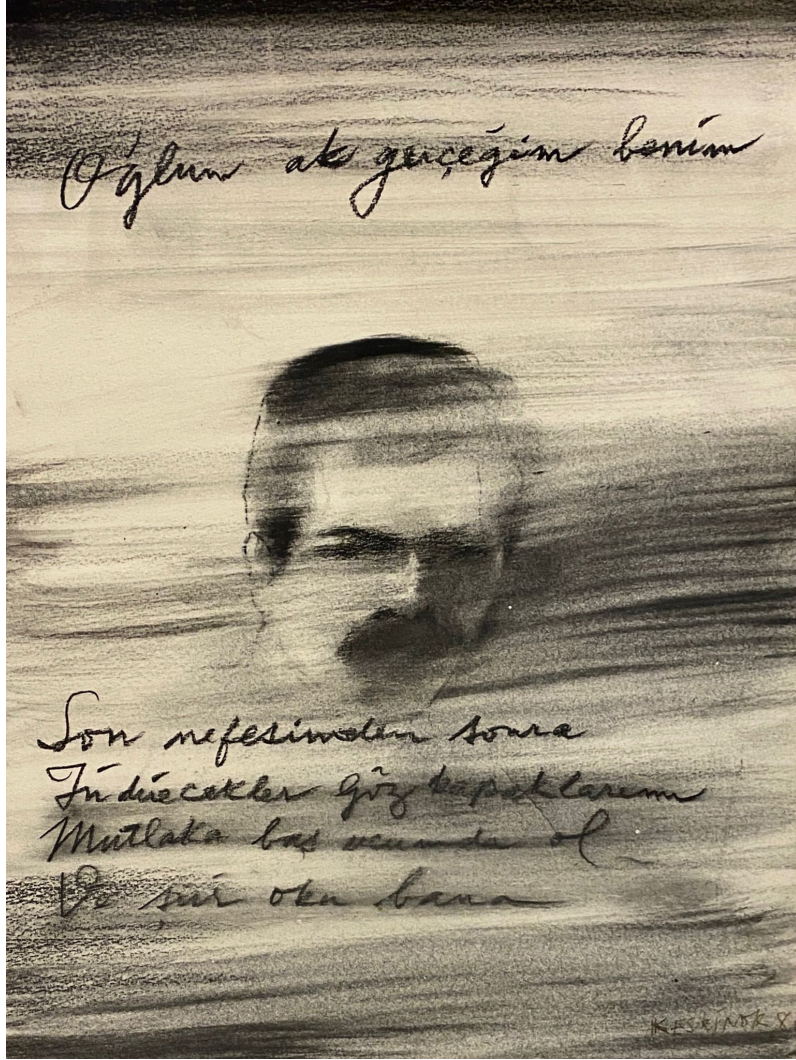 Oğlum ak gerçeğim benim
Son nefesimden sonra
İndirecekler göz kapaklarımı
Mutlaka baş ucumda ol
Ve şiir oku bana
KESKİNOK